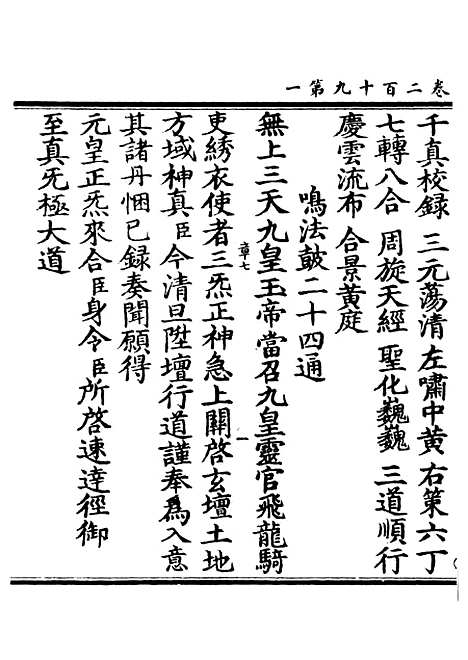 卷二百十九第一
千真校錄 三元蕩清左嘯中黃右策六丁
七轉八合 周旋天經 聖化巍巍 三道順行
慶雲流布 合景黃庭
鳴法鼓二十四通
無上三天九皇玉帝當召九皇靈官飛龍騎
章七 一
吏綉衣使者三炁正神急上關啓玄壇土地
方域神真臣今清旦陞壇行道謹奉爲入意
其諸丹悃已録奏聞願得
元皇正炁來合臣身令臣所啓速達徑御
至真旡極大道